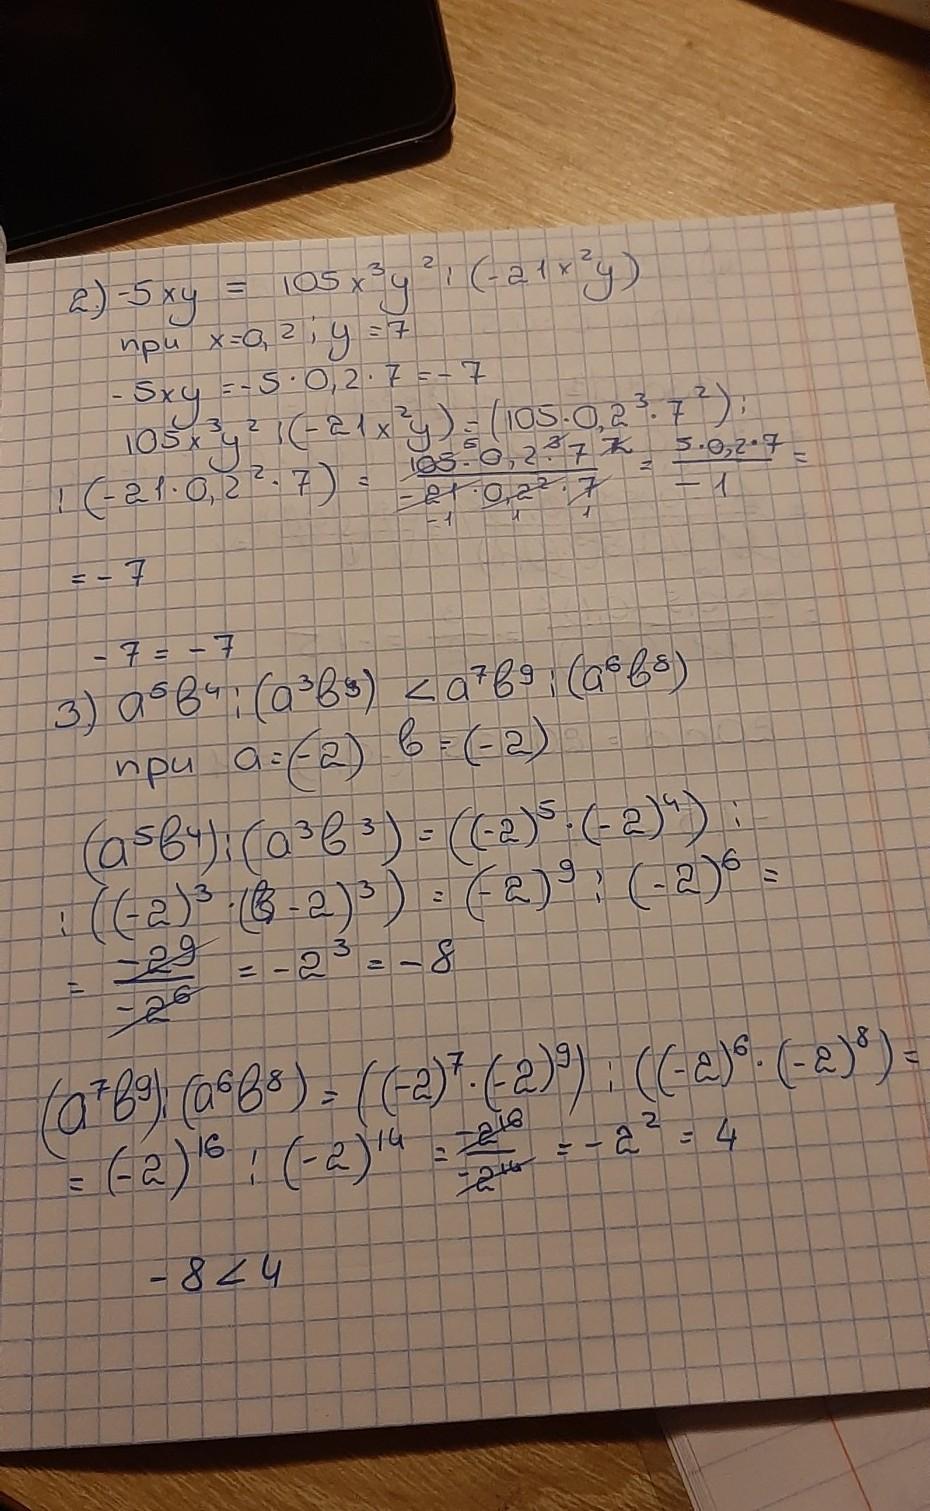 2.) -5xy = 105x³y² : (-21x²y)
при x=0,2 ; y=7
-5xy = -5·0,2·7 = -7
105x³y² : (-21x²y) = (105·0,2³·7²) :
: (-21·0,2²·7) = 105·0,2³·7² / -21·0,2²·7 = 5·0,2·7 / -1 =
= -7
-7 = -7
3) a⁵b⁴ : (a³b³) < a⁷b⁹ : (a⁶b⁸)
при a=(-2) b=(-2)
(a⁵b⁴) : (a³b³) = ((-2)⁵·(-2)⁴) :
: ((-2)³·(-2)³) = (-2)⁹ : (-2)⁶ =
= -2⁹ / -2⁶ = -2³ = -8
(a⁷b⁹) : (a⁶b⁸) = ((-2)⁷·(-2)⁹) : ((-2)⁶·(-2)⁸) =
= (-2)¹⁶ : (-2)¹⁴ = -2¹⁶ / -2¹⁴ = -2² = 4
-8 < 4